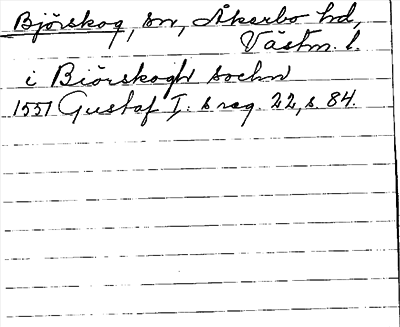 Björskog, sn, Åkerbo hd,
Västm. l.
i Biörskogh sochn
1551 Gustaf I:s reg. 22, s. 84.